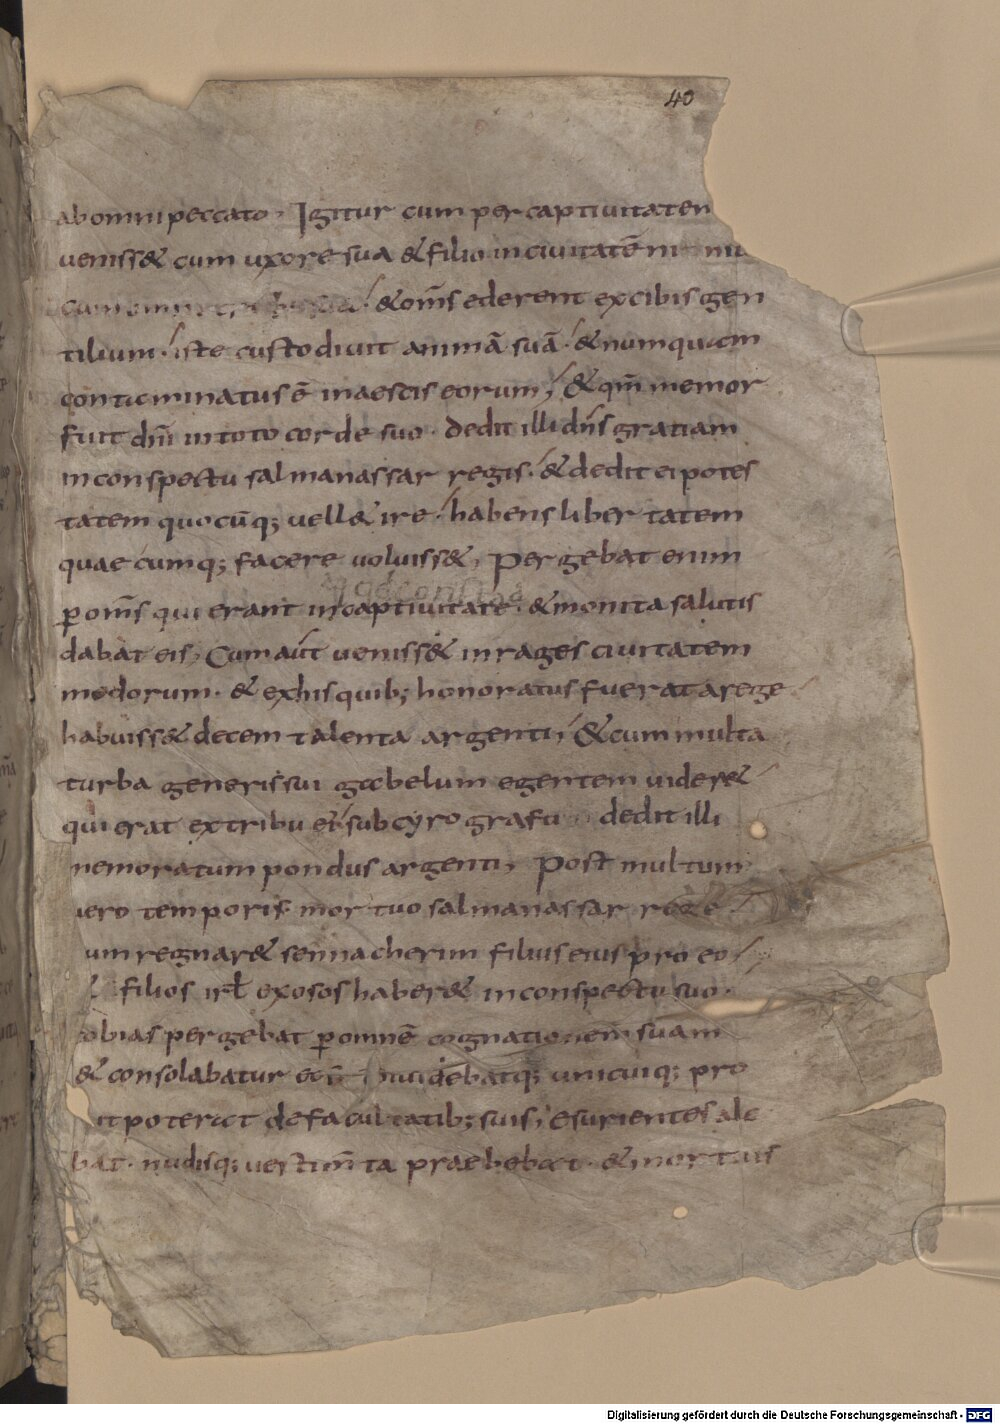 40
ab omni peccato. Igitur cum per captiuitatem
ueniss& cum uxore sua & filio in ciuitatē
cum omni & om̄s ederent ex cibis gen
tilium. iste custodiuit animā suā. & numquam
contaminatus ē in aescis eorum; & qm̄ memor
fuit dn̄i in toto corde suo. dedit illi dn̄s gratiam
in conspectu salmanassar regis. & dedit ei potes
tatem quocūq; uell& ire. habens libertatem
quaecumq; facere uoluiss&; Pergebat enim
ꝑ om̄s qui erant in captiuitate. & monita salutis
dabat eis; Cum aūt ueniss& in rages ciuitatem
medorum. & ex his quib; honoratus fuerat a rege
habuiss& decem talenta argenti; & cum multa
turba generis sui gabelum egentem uider&
qui erat ex tribu ei sub cyrografu dedit illi
memoratum pondus argenti; Post multum
uero temporis. mortuo salmanassar rege
um regnar& sennacherim filius eius pro eo
& filios irł exosos haber& in conspectu suo.
obias pergebat ꝑ omnē cognationem suam
& consolabatur eos diuidebatq; unicuiq; pro
ut poterat de facultatib; suis; Esurientes ale
bat. nudisq; uestim̄ta praebebat. & mortuis
Digitalisierung gefördert durch die Deutsche Forschungsgemeinschaft - DFG